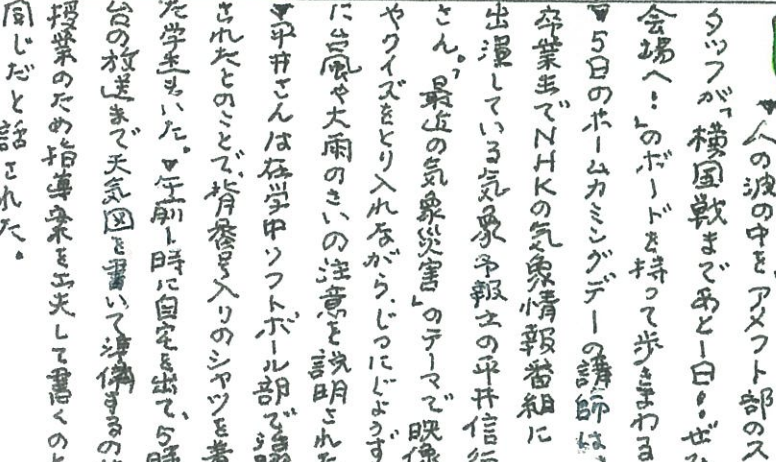 ▼人の波の中を、アメフト部のス
タッフが「横国戦まであと1日!ぜひ
会場へ!」のボードを持って歩きまわる
▼5日のホームカミングデーの講師は、
卒業生でNHKの気象情報番組に
出演している気象予報士の平井信行
さん。「最近の気象災害」のテーマで映像
やクイズをとり入れながら、じつにじょうず
に台風や大雨のさいの注意を説明された
▼平井さんは在学中ソフトボール部で
されたとのことで、背番号入りのシャツを着
た学生もいた。▼午前1時に自宅を出て、5時
台の放送まで天気図を書いて準備するのは
授業のため指導案を工夫して書くのと
同じだと話された。